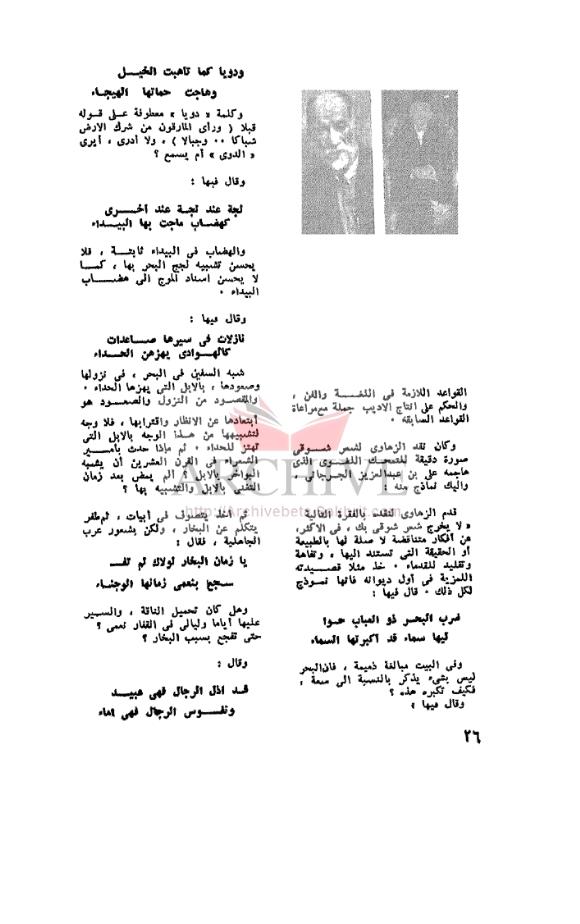 القواعد اللازمة فى اللغــة والفن ،
والحكم على انتاج الاديب جملة مع مراعاة
القواعد السابقة •
وكان نقد الزهاوى لشعر شــوقى
صورة دقيقة للتمحك اللغــوى الذى
هاجمه على بن عبدالعزيز الجــرجانى ،
واليك نماذج منه :
قدم الزهاوى لنقده بالفقرة التالية
« لا يخرج شعر شوقى بك ، فى الاكثر،
عن أفكار متناقضة لا صلة لها بالطبيعة
أو الحقيقة التى تستند اليها ، وتفاهة
وتقليد للقدماء • خذ مثلا قصــيدته
الهمزية فى أول ديوانه فانها نموذج
لكل ذلك • قال فيها :
ضرب البحــر ذو العباب حــوا
ليها سماء قد أكبرتها السماء
وفى البيت مبالغة ذميمة ، فان البحر
ليس بشىء يذكر بالنسبة الى سعة ،
فكيف تكبره هذه ؟
وقال فيها :
ودويا كما تأهبت الخيــل
وهاجت حماتها الهيجــاء
وكلمة « دويا » معطوفة علــى قــوله
قبلا ( ورأى المارقون من شرك الارض
شباكا •• وجبالا ) ، ولا أدرى ، أيرى
« الدوى » أم يسمع ؟
وقال فيها :
لجة عند لجة عند أخــرى
كهضاب ماجت بها البيــداء
والهضاب فى البيداء ثابتــة ، فلا
يحسن تشبيه لجج البحر بها ، كمــا
لا يحسن اسناد الموج الى هضــاب
البيداء •
وقال فيها :
نازلات فى سيرها صــاعدات
كالهــوادى يهزهن الحــداء
شبه السفين فى البحر ، فى نزولها
وصعودها ، بالابل التى يهزها الحداء •
والمقصود من النزول والصعــود هو
ابتعادها عن الانظار واقترابها ، فلا وجه
لتشبيهها من هــذا الوجه بالابل التى
تهتز للحداء • ثم ماذا حدث بأمــير
الشعراء فى القرن العشرين أن يشبه
البواخر بالابل ؟ الم يمض بعد زمان
التغنى بالابل والتشبيه بها ؟
ثم أخذ يتصوف فى أبيات ، ثم طفر
يتكلم عن البخار ، ولكن بشعور عرب
الجاهلية ، فقال :
يا زمان البخار لولاك لم تفــ
ــجع بنعمى زمانها الوجنــاء
وهل كان تحميل الناقة ، والســير
عليها أياما وليالى فى القفار نعمى ؟
حتى تفجع بسبب البخار ؟
وقال :
قــد أذل الرجال فهى عبيــد
ونفــوس الرجال فهى اماء
٢٦
ARCHIVE